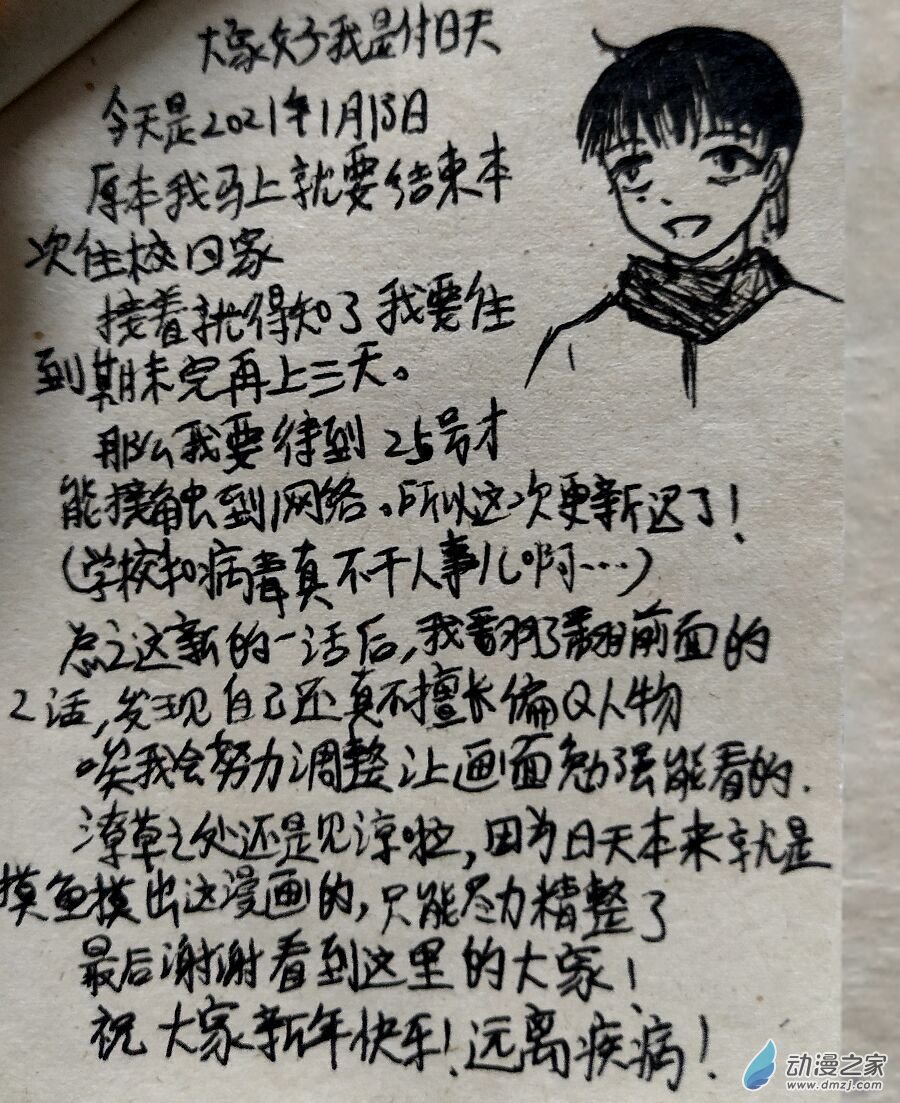 大家好我是付日天
今天是2021年1月13日
原本我马上就要结束本
次住校回家
接着就得知了我要住
到期末完再上三天。
那么我要待到25号才
能接触到网络。所以这次更新迟了!
(学校和病毒真不干人事儿啊…)
总之这新的一话后,我翻了翻前面的
2话,发现自己还真不擅长偏Q人物
唉我会努力调整让画面勉强能看的.
潦草之处还是见谅啦,因为日天本来就是
摸鱼摸出这漫画的,只能尽力精整了
最后谢谢看到这里的大家!
祝大家新年快乐!远离疾病!
动漫之家
www.dmzj.com